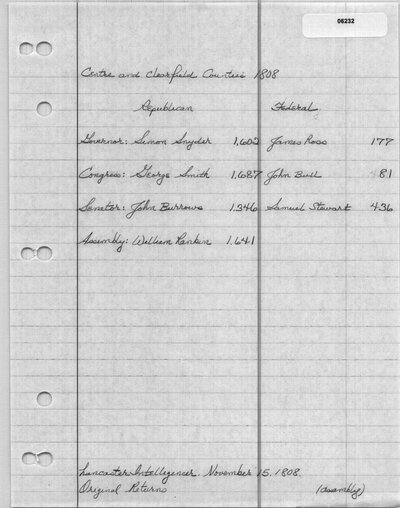 06232
Centre and Clearfield Counties 1808
Republican Federal
Governor: Simon Snyder 1,602 James Ross 177
Congress: George Smith 1,687 John Bull 81
Senator: John Burrows 1,346 Samuel Stewart 436
Assembly: William Rankin 1,641
Lancaster Intelligencer. November 15, 1808.
Original Returns (assembly)